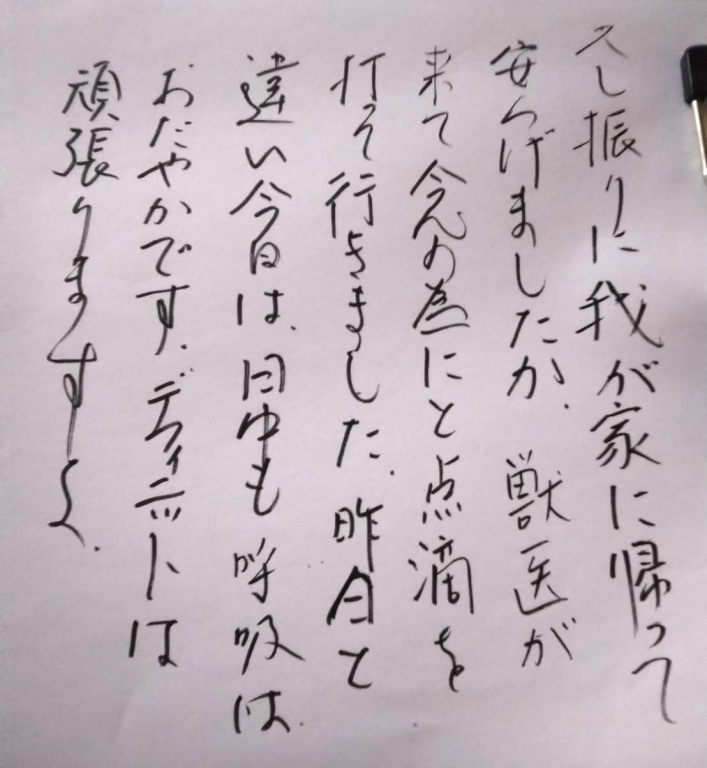 久し振りに我が家に帰って
安らげましたか、獣医が
来て今んの為にと点滴を
打って行きました、昨日と
違い今日は、日中も呼吸は、
おだやかです、ディニットは
頑張りますよ、